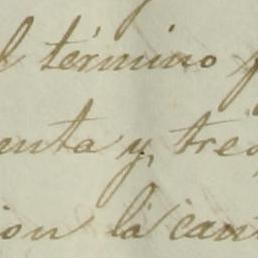 l término
enta y tres
ion la can